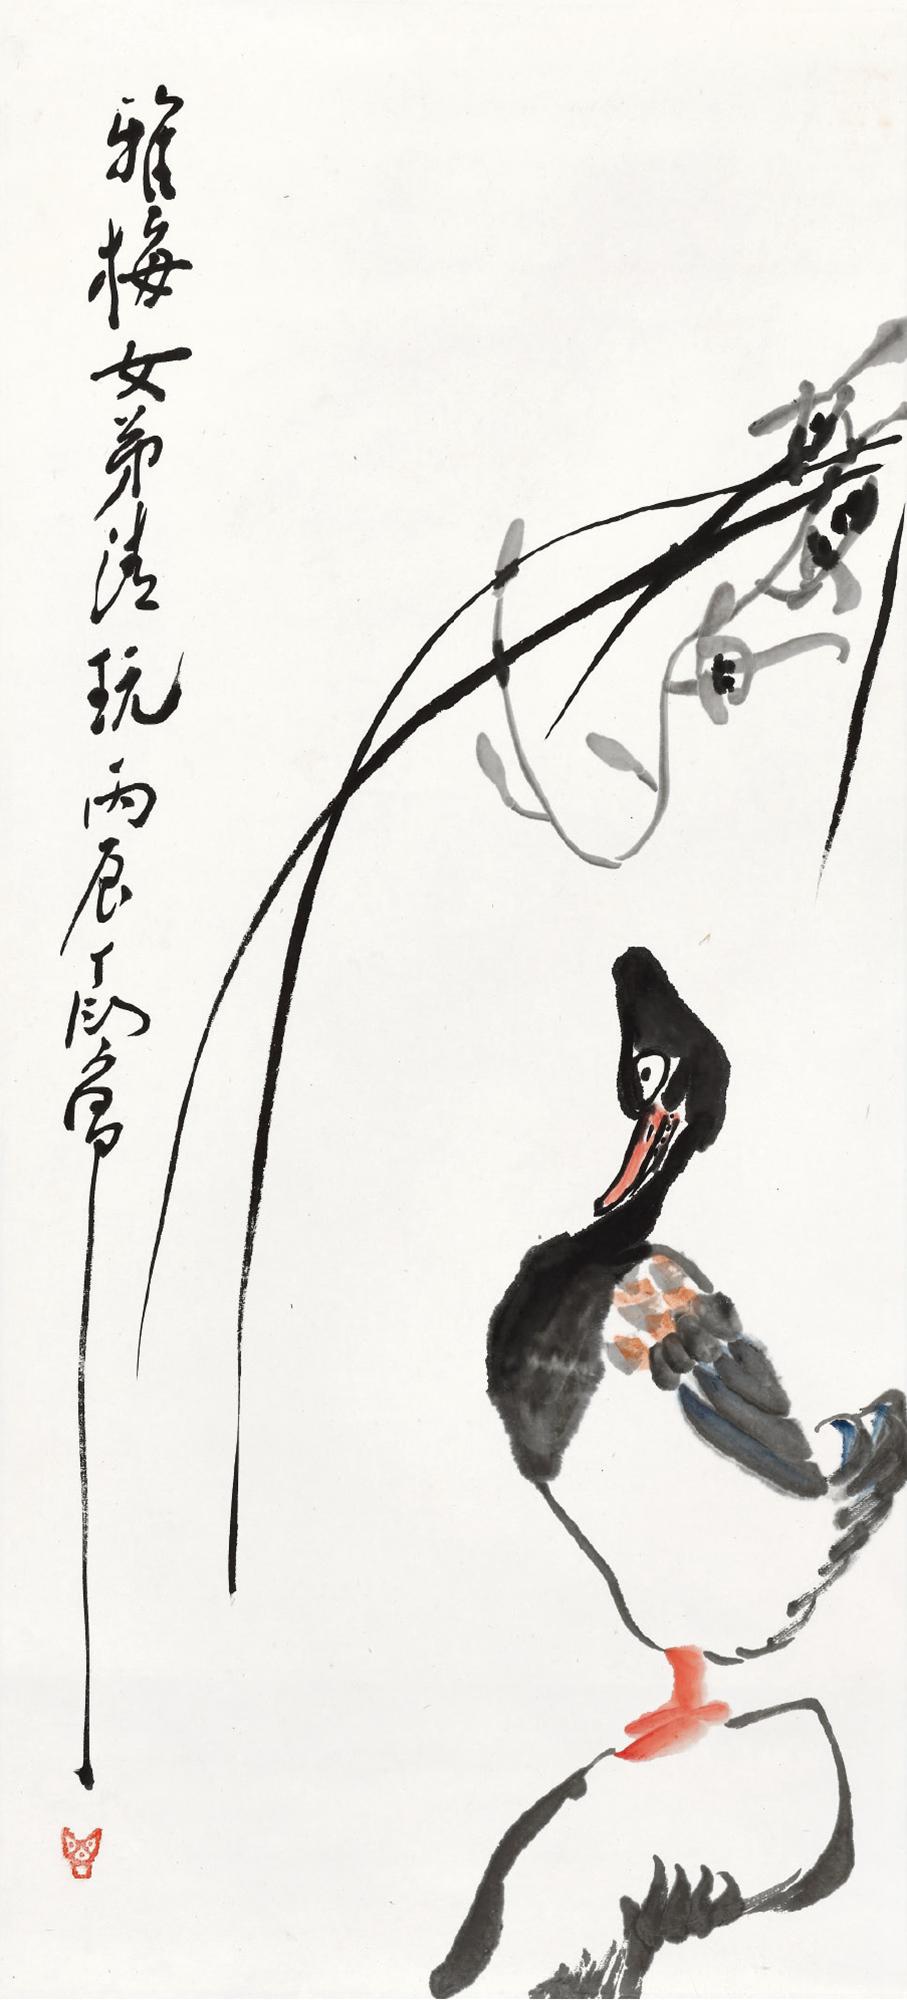 雅梅女弟清玩丙辰丁衍庸